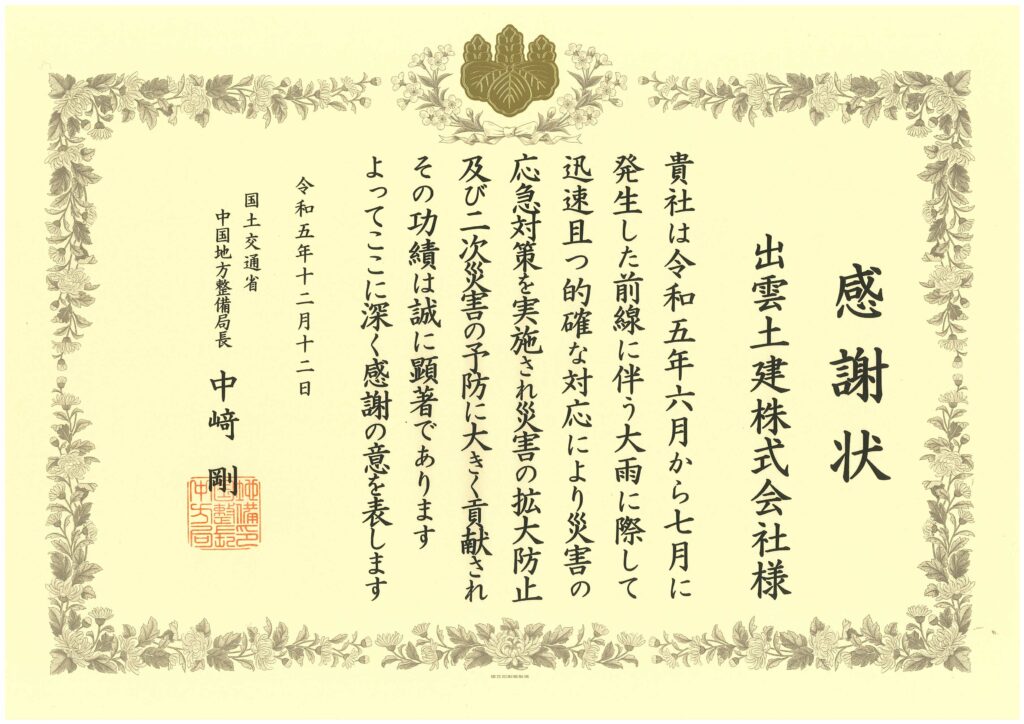 感謝状
出雲土建株式会社様
貴社は令和五年六月から七月に
発生した前線に伴う大雨に際して
迅速且つ的確な対応により災害の
応急対策を実施され災害の拡大防止
及び二次災害の予防に大きく貢献され
その功績は誠に顕著であります
よってここに深く感謝の意を表します
令和五年十二月十二日
国土交通省
中国地方整備局長 中﨑 剛